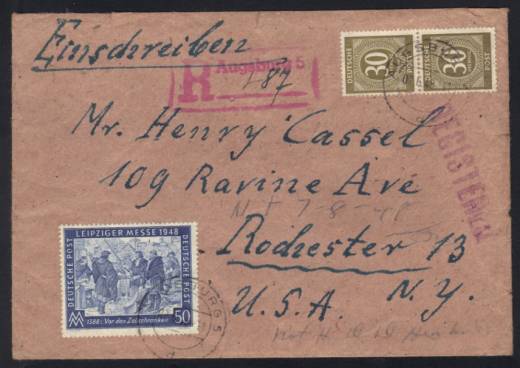 Einschreiben
R Augsburg 5
187
DEUTSCHE 30 POST
DEUTSCHE 30 POST
REGISTERED
Mr. Henry Cassel
109 Ravine Ave
Rochester 13
U.S.A. N.Y.
DEUTSCHE POST LEIPZIGER MESSE 1948 DEUTSCHE POST
1388: Vor den Zollschranken 50
BURG 5